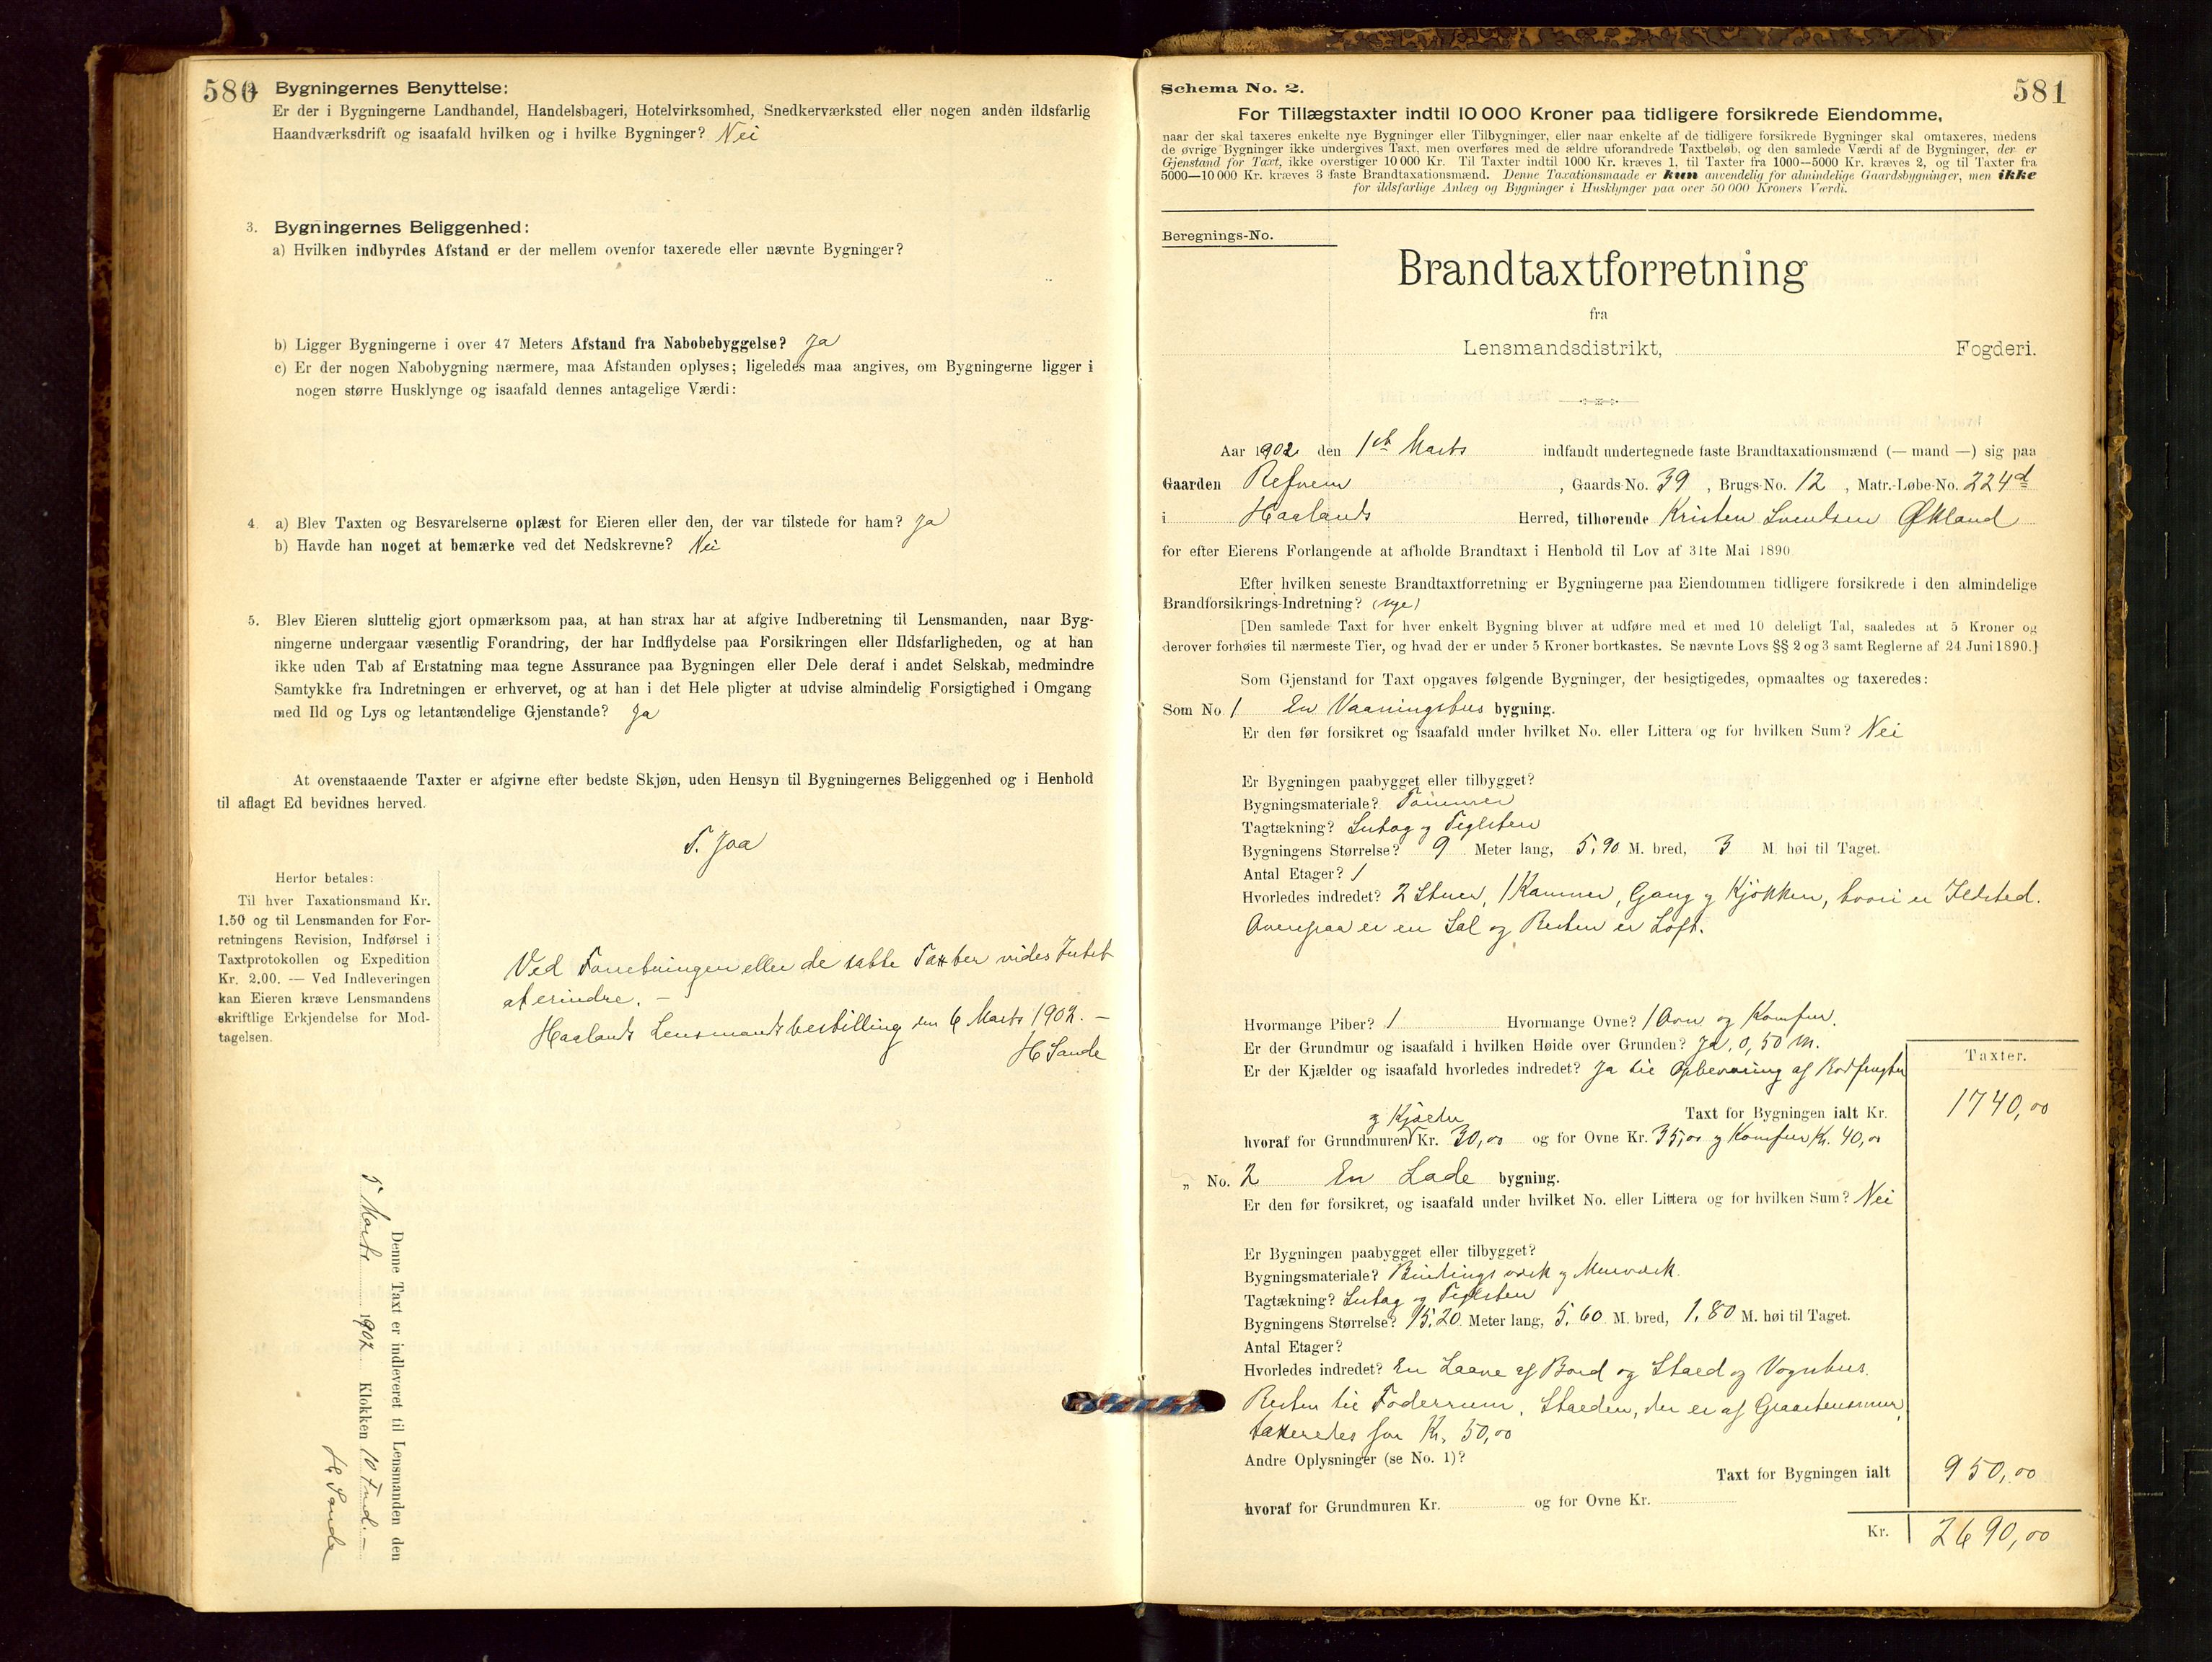 580
Bygningernes Benyttelse:
Er der i Bygningerne Landhandel, Handelsbageri, Hotelvirksomhed, Snedkerværksted eller nogen anden ildsfarlig
Haandværksdrift og isaafald hvilken og i hvilke Bygninger? Nei
3. Bygningernes Beliggenhed:
a) Hvilken indbyrdes Afstand er der mellem ovenfor taxerede eller nævnte Bygninger?
b) Ligger Bygningerne i over 47 Meters Afstand fra Nabobebyggelse? Ja
c) Er der nogen Nabobygning nærmere, maa Afstanden oplyses; ligeledes maa angives, om Bygningerne ligger i
nogen større Husklynge og isaafald dennes antagelige Værdi:
4. a) Blev Taxten og Besvarelserne oplæst for Eieren eller den, der var tilstede for ham? Ja
b) Havde han noget at bemærke ved det Nedskrevne? Nei
5. Blev Eieren sluttelig gjort opmærksom paa, at han strax har at afgive Indberetning til Lensmanden, naar Byg-
ningerne undergaar væsentlig Forandring, der har Indflydelse paa Forsikringen eller Ildsfarligheden, og at han
ikke uden Tab af Erstatning maa tegne Assurance paa Bygningen eller Dele deraf i andet Selskab, medmindre
Samtykke fra Indretningen er erhvervet, og at han i det Hele pligter at udvise almindelig Forsigtighed i Omgang
med Ild og Lys og letantændelige Gjenstande? Ja
At ovenstaaende Taxter er afgivne efter bedste Skjøn, uden Hensyn til Bygningernes Beliggenhed og i Henhold
til aflagt Ed bevidnes herved.
T. Joa
Herfor betales:
Til hver Taxationsmand Kr.
1.50 og til Lensmanden for For-
retningens Revision, Indførsel i
Taxtprotokollen og Expedition
Kr. 2.00. — Ved Indleveringen
kan Eieren kræve Lensmandens
skriftlige Erkjendelse for Mod-
tagelsen.
Ved Forretningen eller de satte Taxter vides Intet
at erindre. —
Haalands Lensmandsbestilling den 6 Marts 1902. —
H Sande
Denne Taxt er indleveret til Lensmanden den
5 Marts 1902 Klokken 10 Fmd. —
H Sande
581
Schema No. 2.
For Tillægstaxter indtil 10 000 Kroner paa tidligere forsikrede Eiendomme,
naar der skal taxeres enkelte nye Bygninger eller Tilbygninger, eller naar enkelte af de tidligere forsikrede Bygninger skal omtaxeres, medens
de øvrige Bygninger ikke undergives Taxt, men overføres med de ældre uforandrede Taxtbeløb, og den samlede Værdi af de Bygninger, der er
Gjenstand for Taxt, ikke overstiger 10 000 Kr. Til Taxter indtil 1000 Kr. kræves 1, til Taxter fra 1000—5000 Kr. kræves 2, og til Taxter fra
5000—10 000 Kr. kræves 3 faste Brandtaxationsmænd. Denne Taxationsmaade er kun anvendelig for almindelige Gaardsbygninger, men ikke
for ildsfarlige Anlæg og Bygninger i Husklynger paa over 50 000 Kroners Værdi.
Beregnings-No.
Brandtaxtforretning
fra
Lensmandsdistrikt, Fogderi.
Aar 1902 den 1st Marts indfandt undertegnede faste Brandtaxationsmænd (— mand —) sig paa
Gaarden Refnem, Gaards-No. 39, Brugs-No. 12, Matr.-Løbe-No. 224d
i Haalands Herred, tilhørende Kristen Svendsen Økland
for efter Eierens Forlangende at afholde Brandtaxt i Henhold til Lov af 31te Mai 1890.
Efter hvilken seneste Brandtaxtforretning er Bygningerne paa Eiendommen tidligere forsikrede i den almindelige
Brandforsikrings-Indretning? (nye)
[Den samlede Taxt for hver enkelt Bygning bliver at udføre med et med 10 deleligt Tal, saaledes at 5 Kroner og
derover forhøies til nærmeste Tier, og hvad der er under 5 Kroner bortkastes. Se nævnte Lovs §§ 2 og 3 samt Reglerne af 24 Juni 1890.]
Som Gjenstand for Taxt opgaves følgende Bygninger, der besigtigedes, opmaaltes og taxeredes:
Som No. 1 En Vaaningshus bygning.
Er den før forsikret og isaafald under hvilket No. eller Littera og for hvilken Sum? Nei
Er Bygningen paabygget eller tilbygget?
Bygningsmateriale? Tømmer
Tagtækning? Sutag og Teglsten
Bygningens Størrelse? 9 Meter lang, 5,90 M. bred, 3 M. høi til Taget.
Antal Etager? 1
Hvorledes indredet? 2 Stuer, 1 Kammer, Gang og Kjøkken, hvori er Ildsted.
Ovenpaa er en Sal og Resten er Loft.
Hvormange Piber? 1 Hvormange Ovne? 1 Ovn og Komfur.
Er der Grundmur og isaafald i hvilken Høide over Grunden? Ja, 0,50 m.
Er der Kjælder og isaafald hvorledes indredet? Ja til Opbevaring af Rodfrugter
Taxter.
Taxt for Bygningen ialt Kr. 1740,00
og Kjælder
hvoraf for Grundmuren Kr. 30,00 og for Ovne Kr. 35,00 og Komfur Kr. 40,00
„ No. 2 En Lade bygning.
Er den før forsikret, og isaafald under hvilket No. eller Littera og for hvilken Sum? Nei
Er Bygningen paabygget eller tilbygget?
Bygningsmateriale? Bindingsværk og Murværk.
Tagtækning? Sutag og Teglsten
Bygningens Størrelse? 15,20 Meter lang, 5,60 M. bred, 1,80 M. høi til Taget.
Antal Etager?
Hvorledes indredet? En Laave af Bord og Stald og Vognhus.
Resten til Foderrum. Stalden, der er af Graastensmur,
taxeredes for Kr. 50,00
Andre Oplysninger (se No. 1)?
Taxt for Bygningen ialt 950,00
hvoraf for Grundmuren Kr. og for Ovne Kr.
Kr. 2690,00